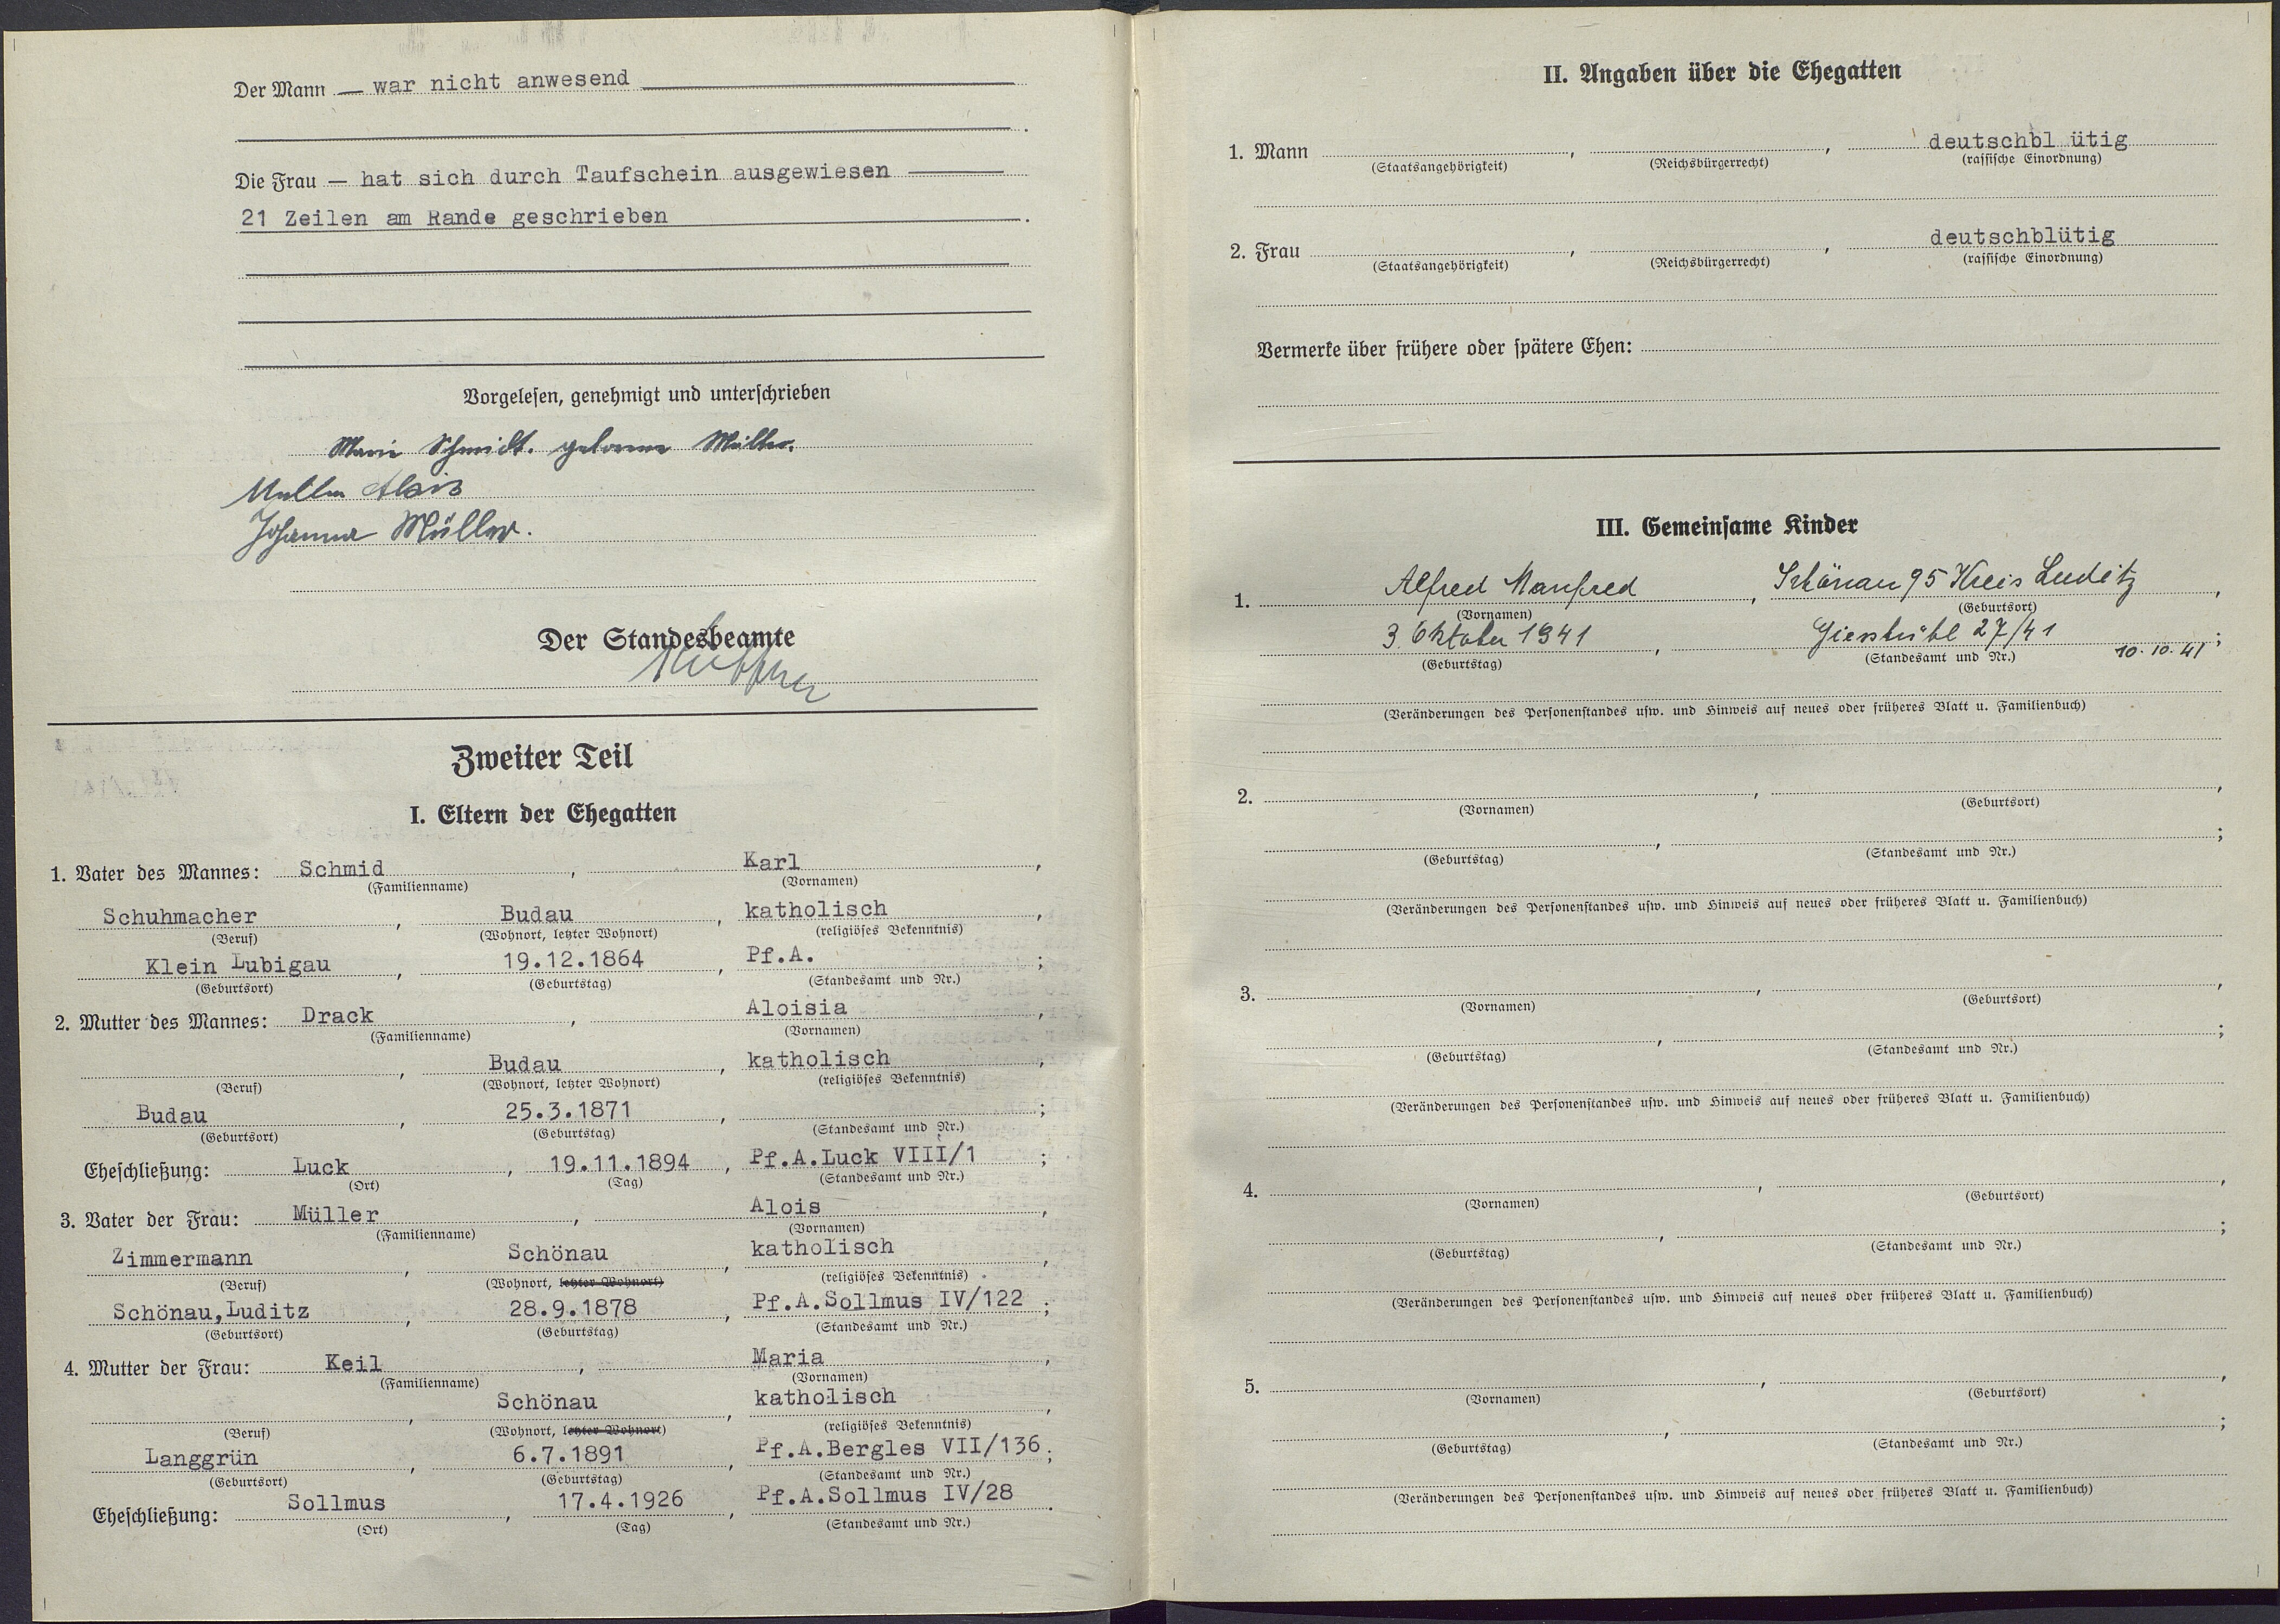 Der Mann — war nicht anwesend
Die Frau — hat sich durch Taufschein ausgewiesen
21 Zeilen am Rande geschrieben
Vorgelesen, genehmigt und unterschrieben
Marie Schmidt. geborene Müller.
Müller Alois
Johanna Müller.
Der Standesbeamte
Zweiter Teil
I. Eltern der Ehegatten
1. Vater des Mannes: Schmid , Karl ,
(Familienname) (Vornamen)
Schuhmacher , Budau , katholisch ,
(Beruf) (Wohnort, letzter Wohnort) (religiöses Bekenntnis)
Klein Lubigau , 19.12.1864 , Pf.A. ;
(Geburtsort) (Geburtstag) (Standesamt und Nr.)
2. Mutter des Mannes: Drack , Aloisia ,
(Familienname) (Vornamen)
, Budau , katholisch ,
(Beruf) (Wohnort, letzter Wohnort) (religiöses Bekenntnis)
Budau , 25.3.1871 , ;
(Geburtsort) (Geburtstag) (Standesamt und Nr.)
Eheschließung: Luck , 19.11.1894 , Pf.A.Luck VIII/1 ;
(Ort) (Tag) (Standesamt und Nr.)
3. Vater der Frau: Müller , Alois ,
(Familienname) (Vornamen)
Zimmermann , Schönau , katholisch ,
(Beruf) (Wohnort, letzter Wohnort) (religiöses Bekenntnis)
Schönau,Luditz , 28.9.1878 , Pf.A.Sollmus IV/122 ;
(Geburtsort) (Geburtstag) (Standesamt und Nr.)
4. Mutter der Frau: Keil , Maria ,
(Familienname) (Vornamen)
, Schönau , katholisch ,
(Beruf) (Wohnort, letzter Wohnort) (religiöses Bekenntnis)
Langgrün , 6.7.1891 , Pf.A.Bergles VII/136 ;
(Geburtsort) (Geburtstag) (Standesamt und Nr.)
Eheschließung: Sollmus , 17.4.1926 , Pf.A.Sollmus IV/28 .
(Ort) (Tag) (Standesamt und Nr.)
II. Angaben über die Ehegatten
1. Mann , , deutschbl ütig
(Staatsangehörigkeit) (Reichsbürgerrecht) (rassische Einordnung)
2. Frau , , deutschblütig
(Staatsangehörigkeit) (Reichsbürgerrecht) (rassische Einordnung)
Vermerke über frühere oder spätere Ehen:
III. Gemeinsame Kinder
1. Alfred Manfred , Schönau 95 Kreis Luditz ,
(Vornamen) (Geburtsort)
3. Oktober 1941 , Giesshübl 27/41 10.10.41 ;
(Geburtstag) (Standesamt und Nr.)
(Veränderungen des Personenstandes usw. und Hinweis auf neues oder früheres Blatt u. Familienbuch)
2. , ,
(Vornamen) (Geburtsort)
, ;
(Geburtstag) (Standesamt und Nr.)
(Veränderungen des Personenstandes usw. und Hinweis auf neues oder früheres Blatt u. Familienbuch)
3. , ,
(Vornamen) (Geburtsort)
, ;
(Geburtstag) (Standesamt und Nr.)
(Veränderungen des Personenstandes usw. und Hinweis auf neues oder früheres Blatt u. Familienbuch)
4. , ,
(Vornamen) (Geburtsort)
, ;
(Geburtstag) (Standesamt und Nr.)
(Veränderungen des Personenstandes usw. und Hinweis auf neues oder früheres Blatt u. Familienbuch)
5. , ,
(Vornamen) (Geburtsort)
, ;
(Geburtstag) (Standesamt und Nr.)
(Veränderungen des Personenstandes usw. und Hinweis auf neues oder früheres Blatt u. Familienbuch)